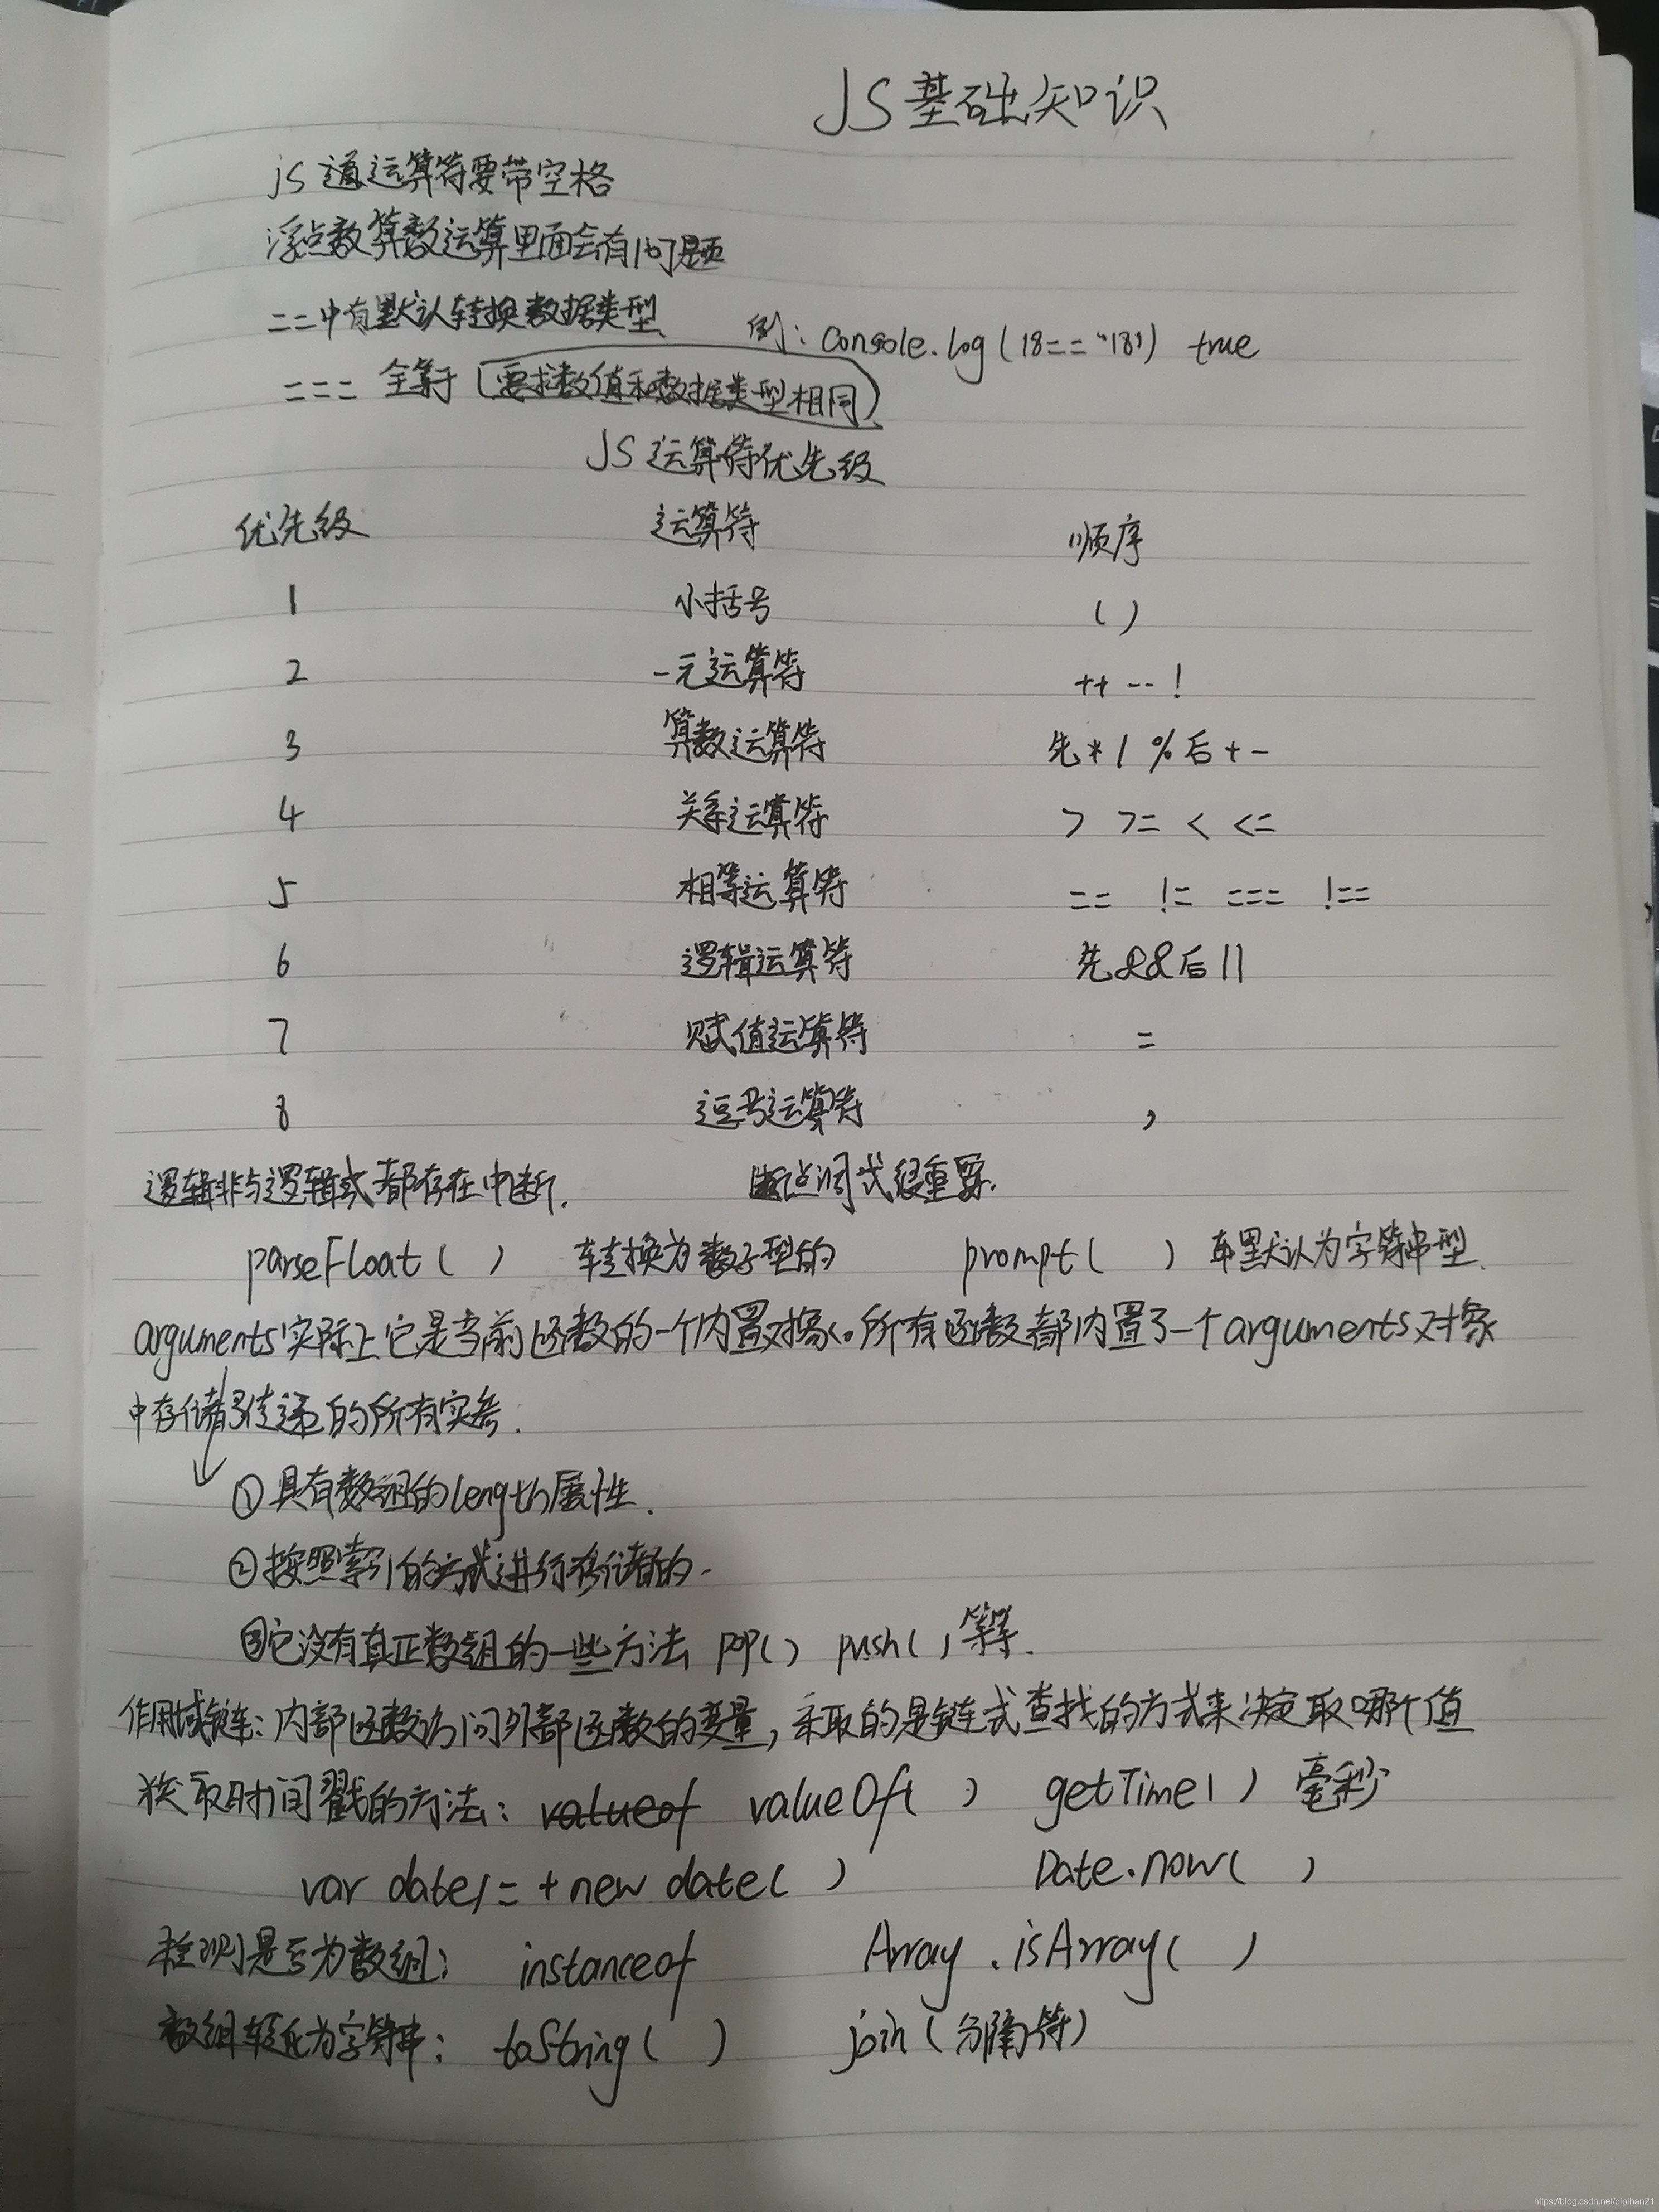 JS基础知识
js 遇运算符要带空格
浮点数算数运算里面会有问题
==中有默认转换数据类型 例：console.log(18=="18") true
=== 全等于(要求数值和数据类型相同)
JS 运算符优先级
优先级 运算符 顺序
1 小括号 ( )
2 一元运算符 ++ -- !
3 算数运算符 先 * / % 后 + -
4 关系运算符 > >= < <=
5 相等运算符 == != === !==
6 逻辑运算符 先&&后||
7 赋值运算符 =
8 逗号运算符 ,
逻辑非与逻辑或都存在中断. 断点调式很重要.
parseFloat( ) 转换为数子型的 prompt( ) 默认为字符串型.
arguments实际上它是当前函数的一个内置对象。所有函数都内置了一个arguments对象
中存储了传递的所有实参.
①具有数组的length属性.
②按照索引的方式进行存储的.
③它没有真正数组的一些方法 pop() push()等等.
作用域链：内部函数访问外部函数的变量，采取的是链式查找的方式来决定取哪个值
获取时间戳的方法：valueof valueOf( ) getTime( ) 毫秒
var date1= + new date( ) Date.now( )
检测是否为数组： instanceof Array.isArray( )
数组转化为字符串： toString( ) join(分隔符)
https://blog.csdn.net/pipihan21